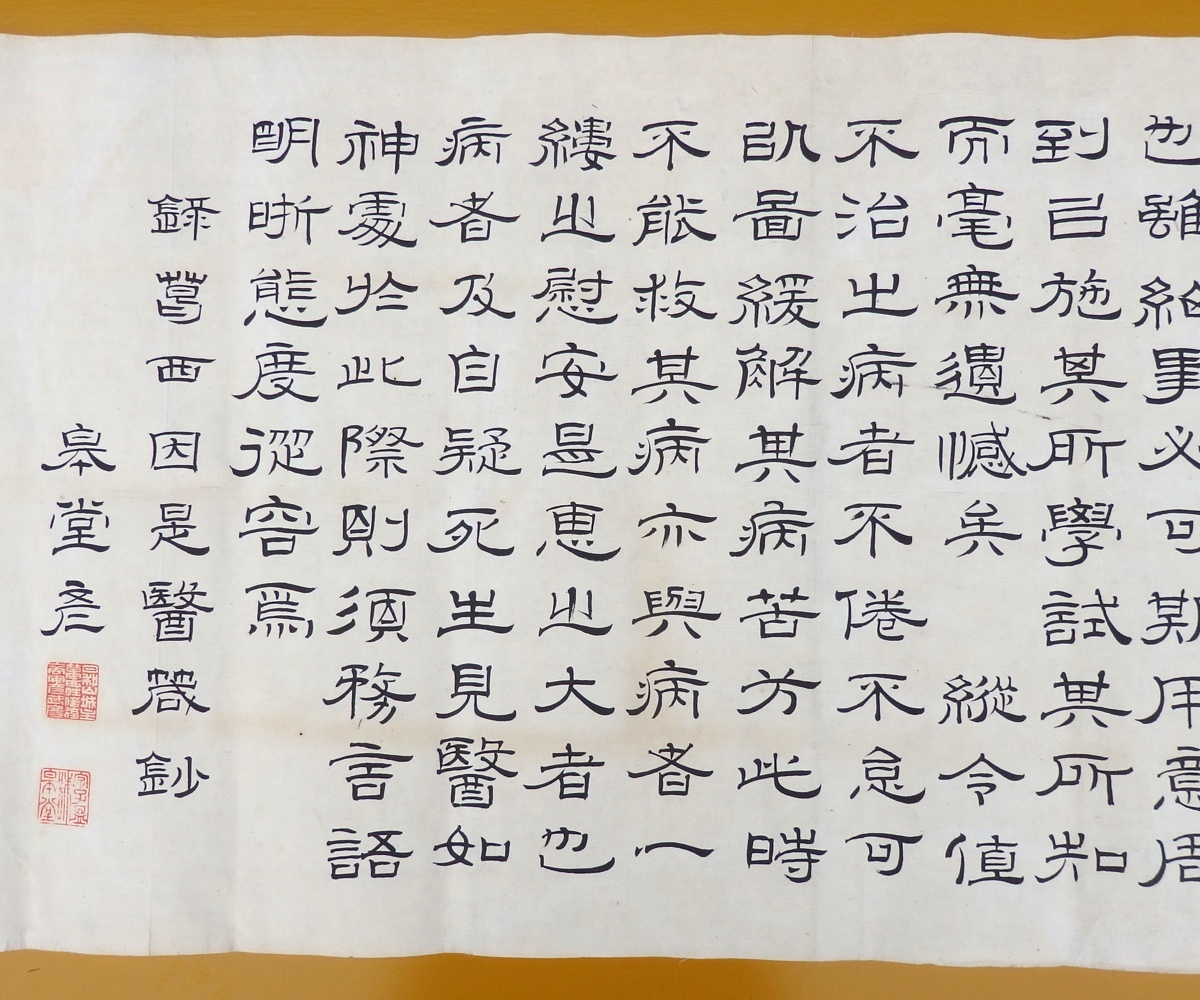 也雖給事必可斯用意周
到已施其所學試其所知
而毫無遺憾矣　縱令值
不治之病者不倦不怠可
以啚緩解其病苦方此時
不能救其病亦與病者一
縷之慰安是惠之大者也
病者及自疑死生見醫如
神處於此際則須務言語
明晰態度從容焉
錄葛西因是醫箴鈔
皋堂彥